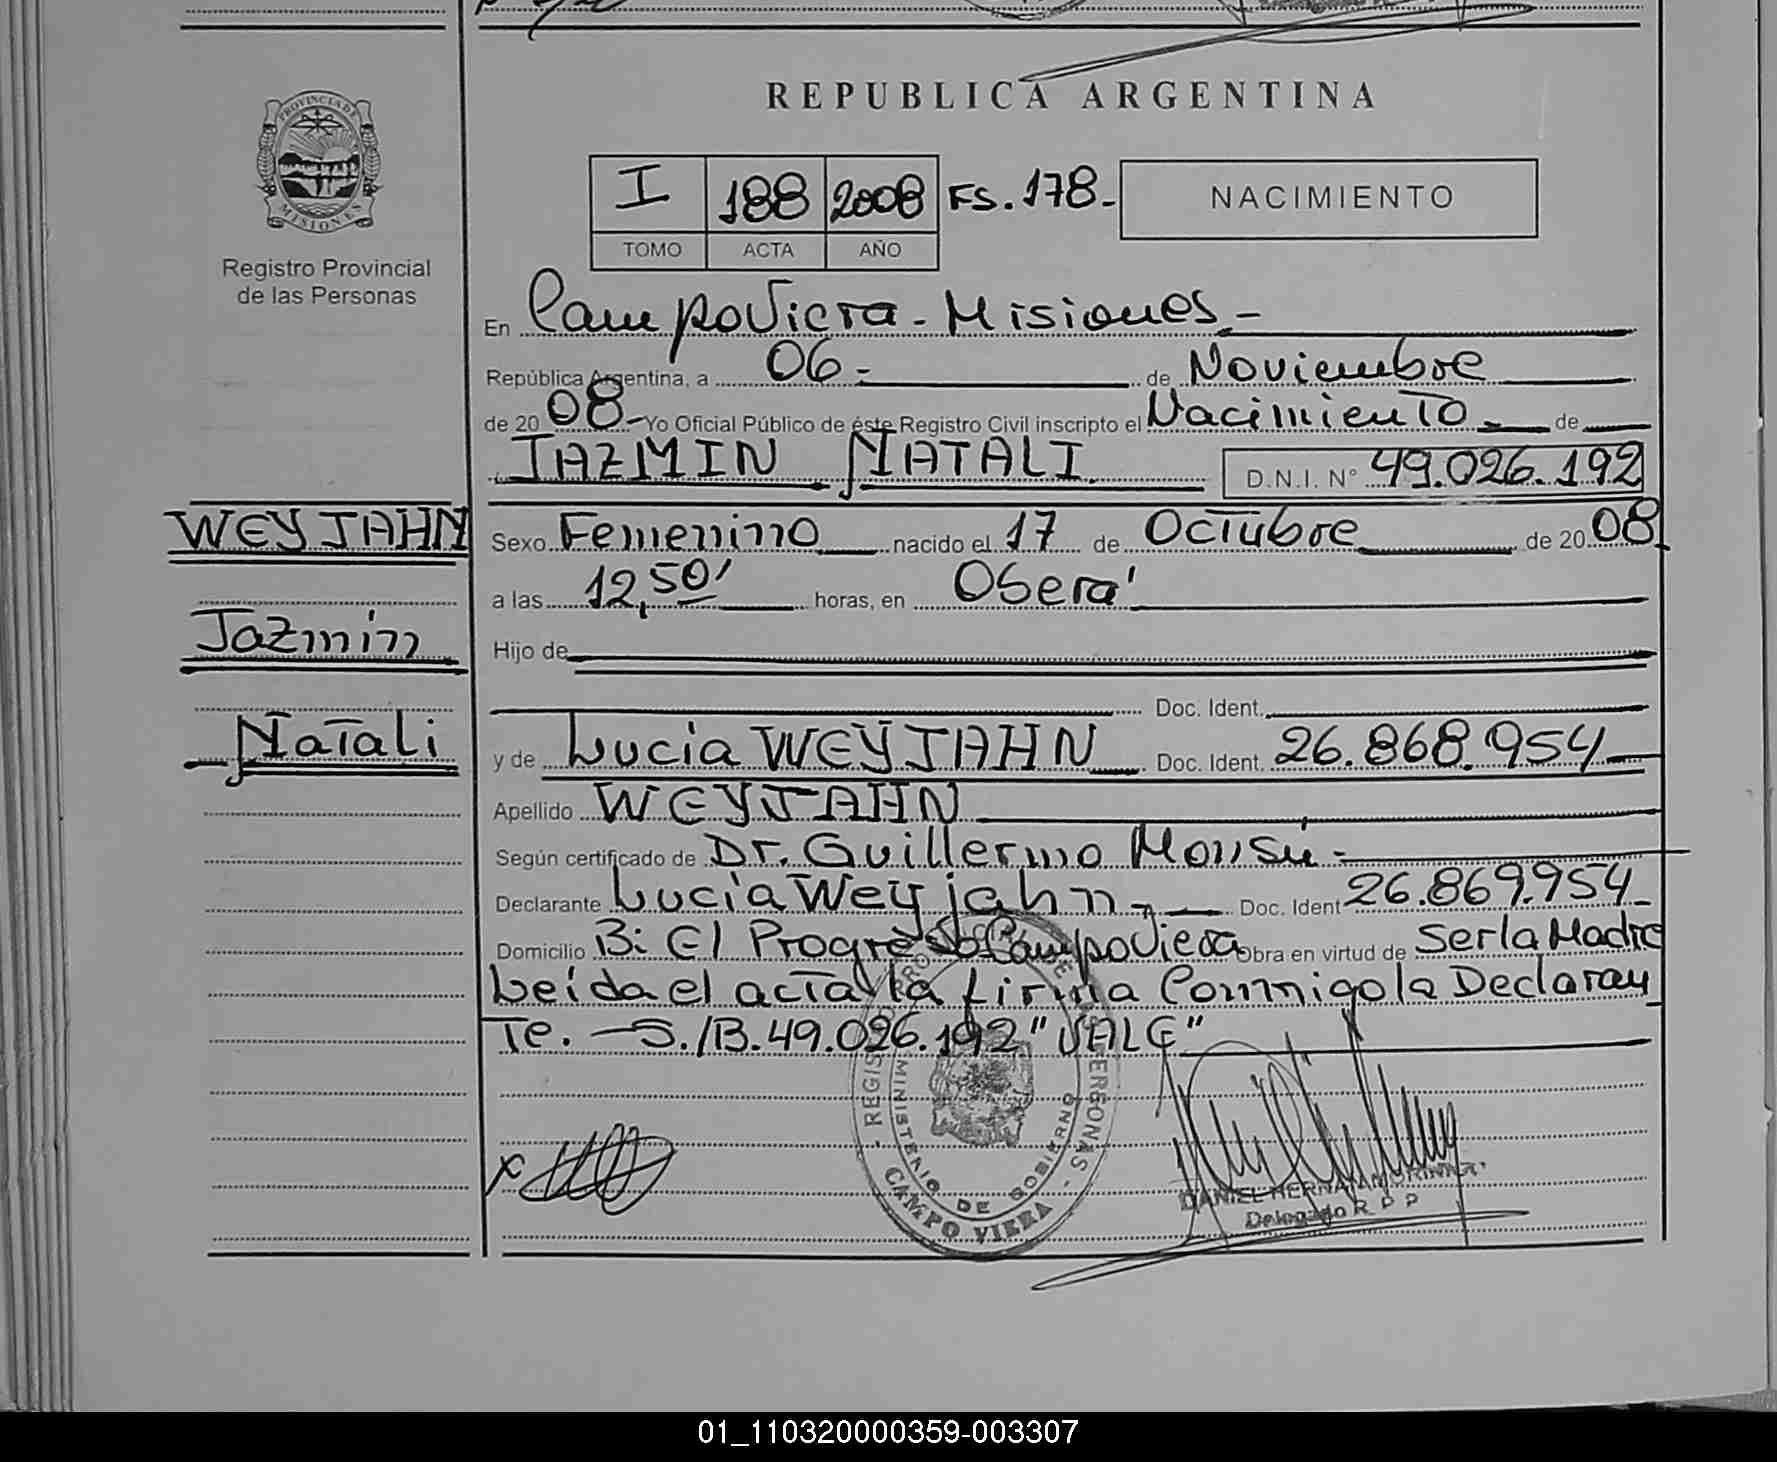 REPUBLICA ARGENTINA
PROVINCIA DE MISIONES
Registro Provincial
de las Personas
I 188 2008 FS. 178.-
TOMO ACTA AÑO
NACIMIENTO
En Campo Viera - Misiones.-
República Argentina, a 06.- de Noviembre
de 20 08.- Yo Oficial Público de éste Registro Civil inscripto el Nacimiento.- de
JAZMIN NATALI D.N.I. Nº 49.026.192
WEYJAHN
Jazmin
Natali
Sexo Femenino nacido el 17 de Octubre de 20 08
a las 12,50' horas, en Oberá
Hijo de
Doc. Ident.
y de Lucia WEYJAHN Doc. Ident. 26.868.954
Apellido WEYJAHN
Según certificado de Dr. Guillermo Monsú.-
Declarante Lucia Weyjahn.- Doc. Ident 26.869.954
Domicilio B: El Progreso Campo Viera Obra en virtud de Ser la Madre
Leída el acta la firma Conmigo la Declaran
Te. - S./B. 49.026.192 "VALE"
x
REGISTRO PROVINCIAL DE LAS PERSONAS
MINISTERIO DE GOBIERNO
CAMPO VIERA
DANIEL HERNAN
Delegado R P P
01_110320000359-003307